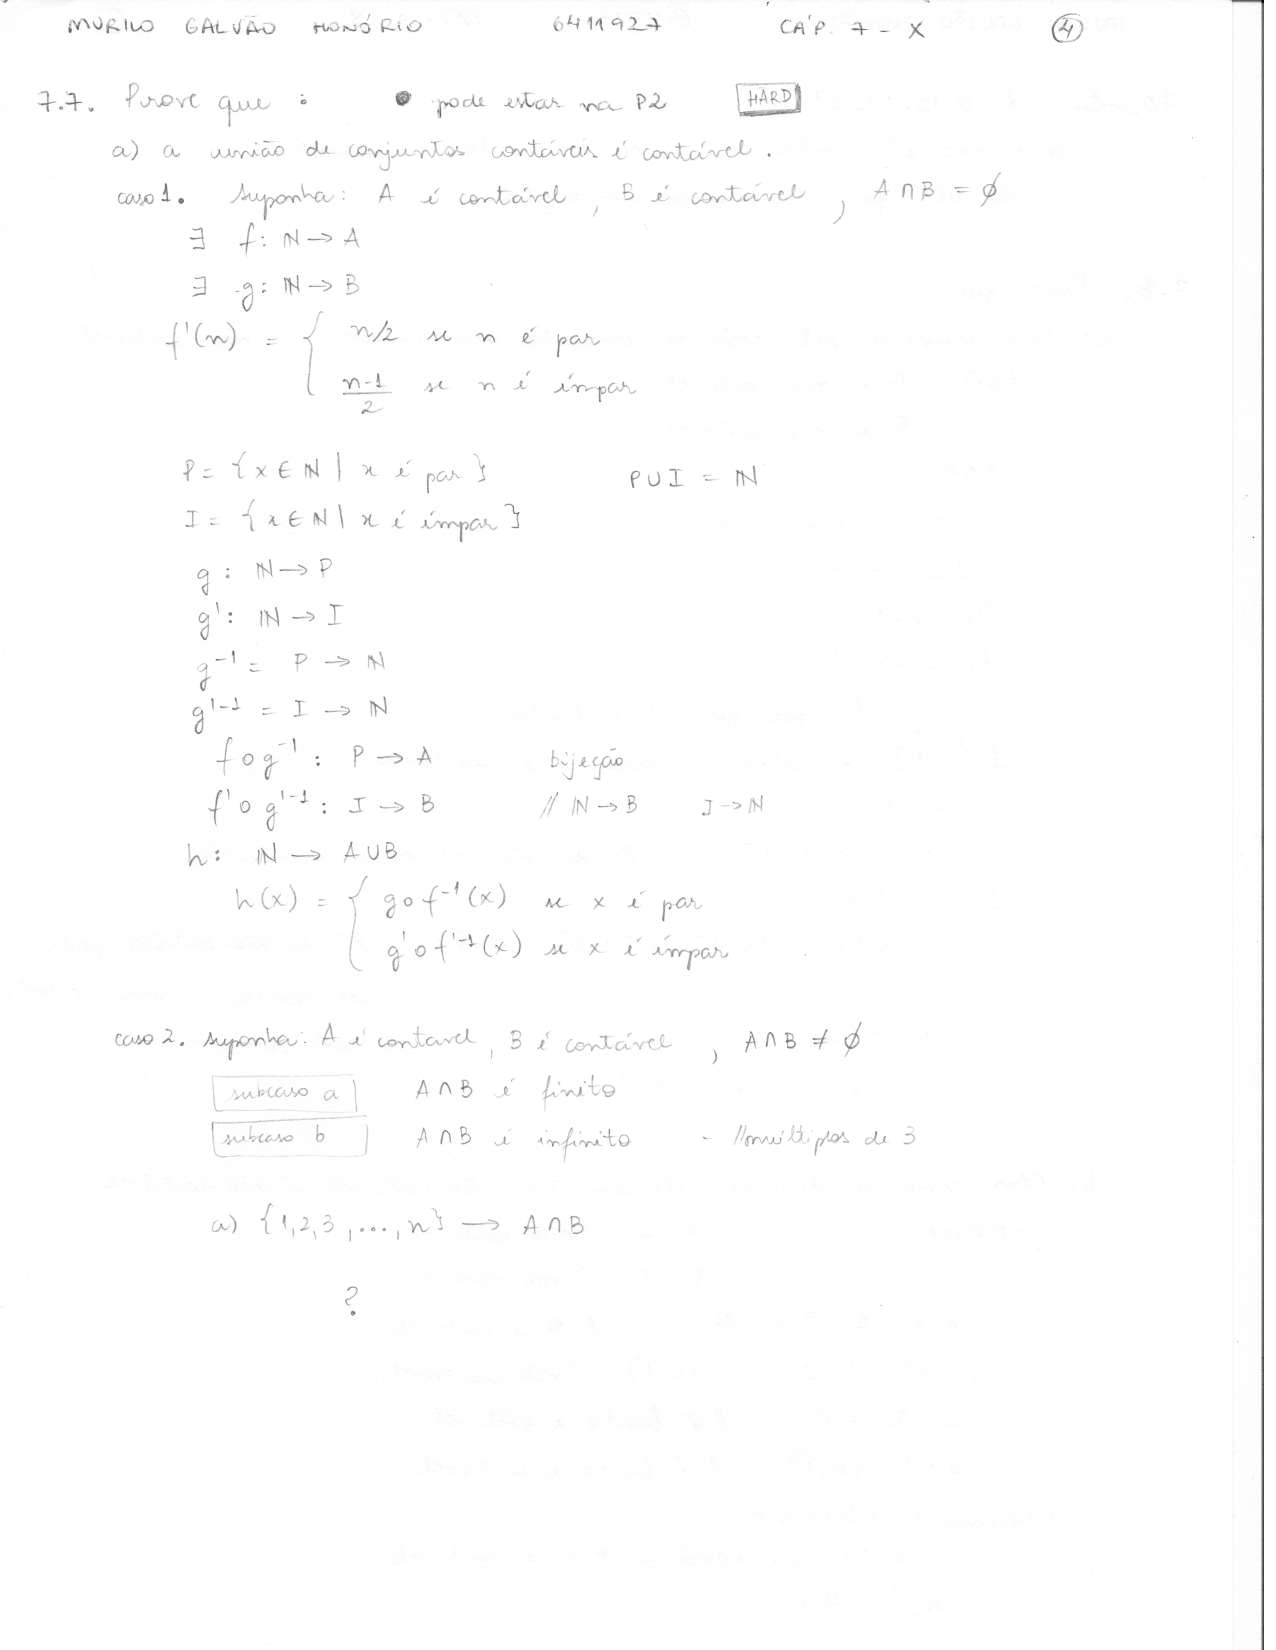 MURILO GALVÃO HONÓRIO 6411927 CÁP. 7 - X 4
7.7. Prove que : • pode estar na P2 HARD
a) a união de conjuntos contáveis é contável.
caso 1. Suponha: A é contável, B é contável, A ∩ B = ∅
∃ f: ℕ → A
∃ g: ℕ → B
f'(n) = { n/2 se n é par
n-1/2 se n é ímpar
P = {x ∈ ℕ | x é par} P ∪ I = ℕ
I = {x ∈ ℕ | x é ímpar}
g : ℕ → P
g' : ℕ → I
g⁻¹ = P → ℕ
g'⁻¹ = I → ℕ
f o g⁻¹ : P → A bijeção
f' o g'⁻¹ : I → B // ℕ → B I → ℕ
h : ℕ → A ∪ B
h(x) = { g o f⁻¹(x) se x é par
g' o f'⁻¹(x) se x é ímpar
caso 2. suponha: A é contável, B é contável, A ∩ B ≠ ∅
subcaso a A ∩ B é finito
subcaso b A ∩ B é infinito - // múltiplos de 3
a) {1,2,3,...,n} → A ∩ B
?